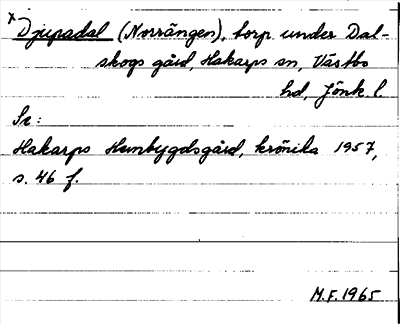 x Djupadal (Norrängen), torp under Dal-
skogs gård, Hakarps sn, Västbo
hd, Jönk. l.
Se:
Hakarps Hembygdsgård, krönika 1957,
s. 46 f.
M.F. 1965